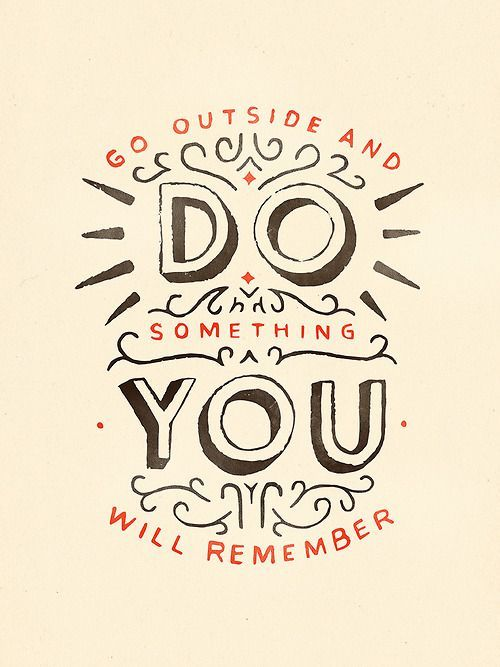 GO OUTSIDE AND
DO
SOMETHING
YOU
WILL REMEMBER